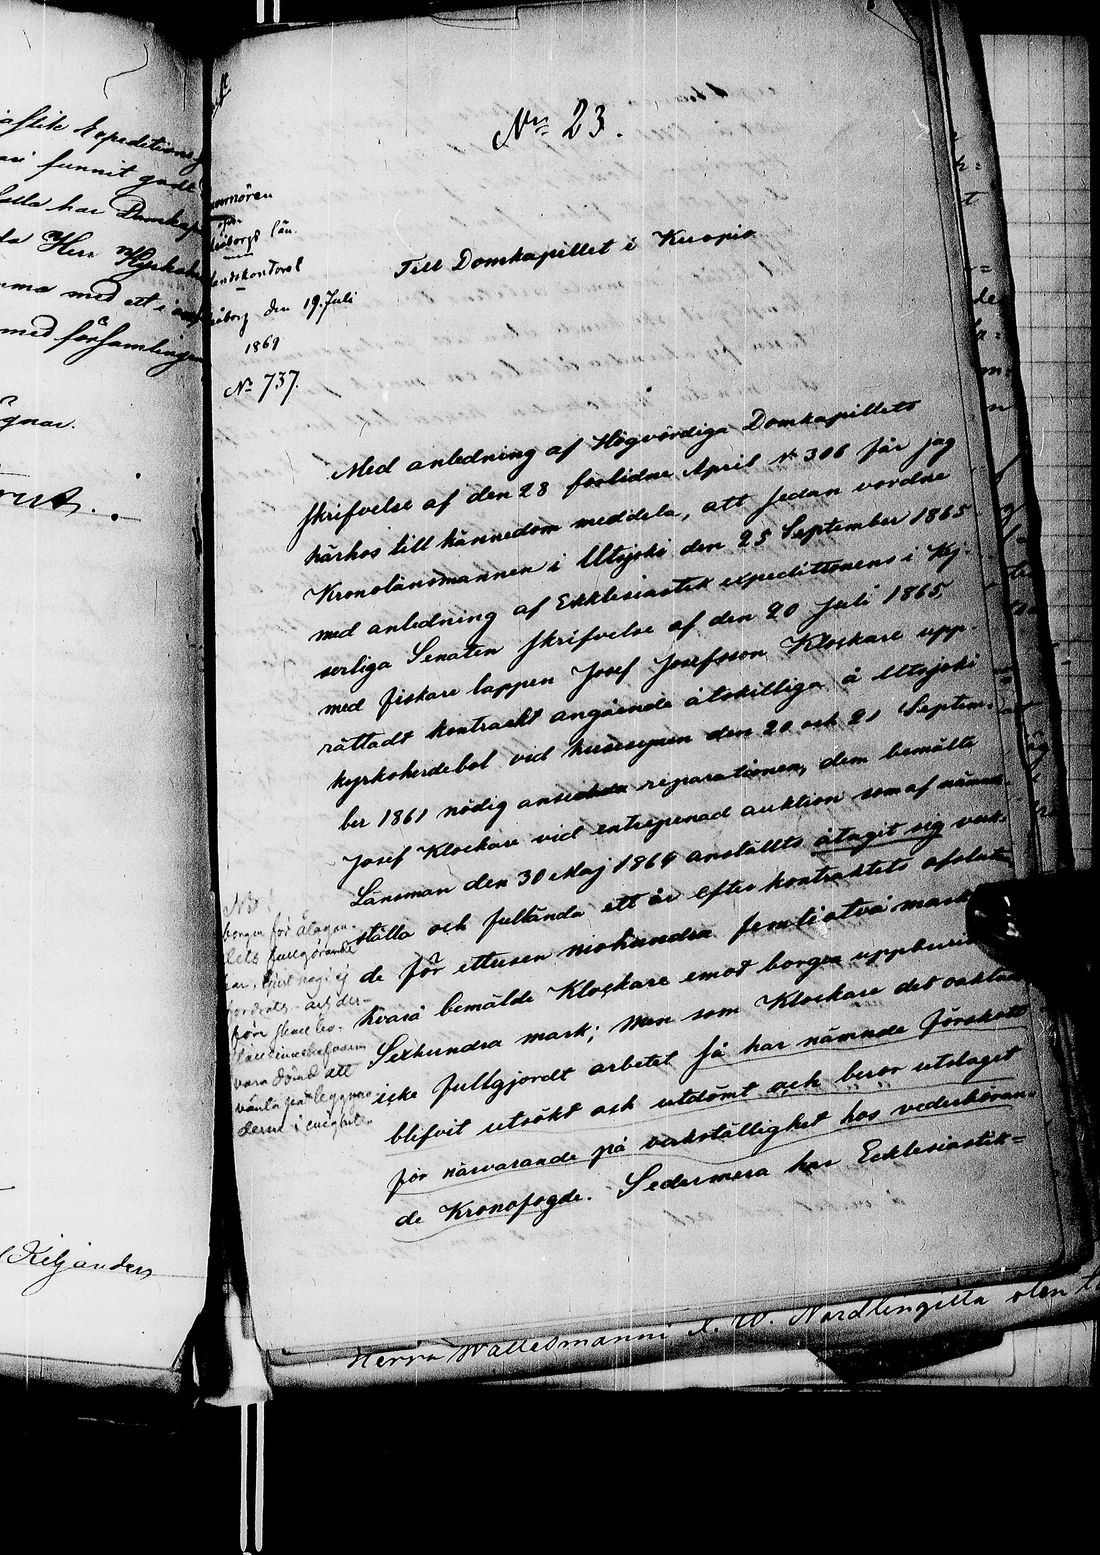 aslik Expeditions
funnit godt
har Domkap
Herr Kyrkoh
med ett i
med församlingen
gnar.
Kiljander
No 23.
öfver
Uleåborgs län.
Landskontoret
Uleåborg den 19. Juli
1869
No 737.
Till Domkapitlet i Kuopio
Med anledning af Högvördiga Domkapitlets
skrifvelse af den 28 förlidne April No 306 får jag
härhos till kännedom meddela, att sedan vordne
Kronolänsmannen i Utsjoki den 25 September 1865
med anledning af Ekklesiastik expeditionens i Kej-
serliga Senaten skrifvelse af den 20 Juli 1865
med fiskare lappen Josef Josefsson Klockare upp-
rättadt kontrackt angående åtskilliga å Utsjoki
kyrkoherdebol vid husesynen den 20 och 21 Septem-
ber 1861 nödig ansedda reparationer, dem bemälte
Josef Klockare vid entrepenad auktion som af nämnde
Länsman den 30 Maj 1864 anställts åtagit sig verk-
ställa och fullända ett år efter kontraktets afslutan-
de för ettusen niohundra femtiotvå mark
hvaraf bemälde Klockare emot borgen uppburit
Sexhundra mark; men som Klockare det oaktadt
icke fullgjordt arbetet så har nämnde förskott
blifvit utsökt och utdömt och beror utslaget
för närvarande på verkställighet hos vederböran-
de Kronofogde. Sedermera har Ecklesiastik=
borgen för åtagan-
dets fullgörande
vänta på byggna-
derna i
Herra Wallesmanni A. W. Nordlingilta olen